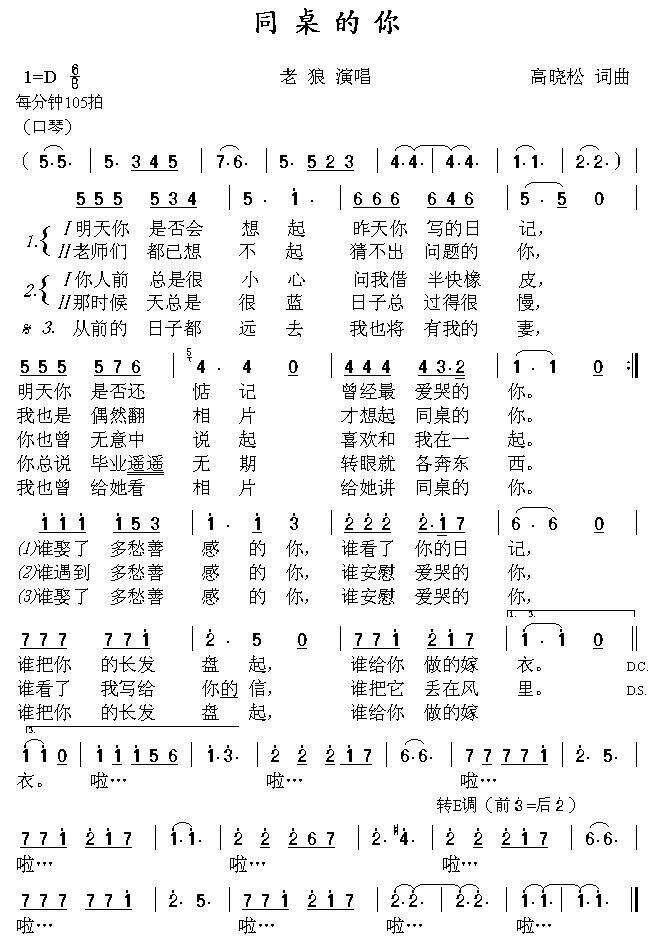 同桌的你
1=D 6/8 老狼 演唱 高晓松 词曲
每分钟105拍
（口琴）
( 5·5· | 5· 3 4 5 | 7·6· | 5· 5 2 3 | 4·4· 4·4· | 1·1· | 2·2· ) |
5 5 5 5 3 4 | 5 · 1 · | 6 6 6 6 4 6 | 5 · 5 0 |
1. I 明天你 是否会 想 起 昨天你 写的日 记，
II 老师们 都已想 不 起 猜不出 问题的 你，
2. I 你人前 总是很 小 心 问我借 半快橡 皮，
II 那时候 天总是 很 蓝 日子总 过得很 慢，
3. 从前的 日子都 远 去 我也将 有我的 妻，
5 5 5 5 7 6 | 5 4 · 4 0 | 4 4 4 4 3·2 | 1 · 1 0 :||
明天你 是否还 惦 记 曾经最 爱哭的 你。
我也是 偶然翻 相 片 才想起 同桌的 你。
你也曾 无意中 说 起 喜欢和 我在一 起。
你总说 毕业遥遥 无 期 转眼就 各奔东 西。
我也曾 给她看 相 片 给她讲 同桌的 你。
1 1 1 1 5 3 | 1 · 1 3 | 2 2 2 2·1 7 | 6 · 6 0 |
(1)谁娶了 多愁善 感 的 你， 谁看了 你的日 记，
(2)谁遇到 多愁善 感 的 你， 谁安慰 爱哭的 你，
(3)谁娶了 多愁善 感 的 你， 谁安慰 爱哭的 你，
1. 3.
7 7 7 7 7 1 | 2 · 5 0 | 7 7 7 2 1 7 | 1 · 1 0 ||
谁把你 的长发 盘 起， 谁给你 做的嫁 衣。 D.C.
谁看了 我写给 你的 信， 谁把它 丢在风 里。 D.S.
谁把你 的长发 盘 起， 谁给你 做的嫁
3.
1 1 0 | 1 1 1 1 5 6 | 1·3· | 2 2 2 2 1 7 | 6·6· | 7 7 7 7 7 1 | 2· 5· |
衣。 啦… 啦… 啦…
转E调（前3=后2）
7 7 1 2 1 7 | 1·1· | 2 2 2 6 7 | 2· #4· | 2 2 2 2 1 7 | 6·6· |
啦… 啦… 啦…
7 7 7 7 7 1 | 2· 5· | 7 7 1 2 1 7 | 2·2· 2·2· | 1·1· 1·1· ||
啦… 啦… 啦… 啦…